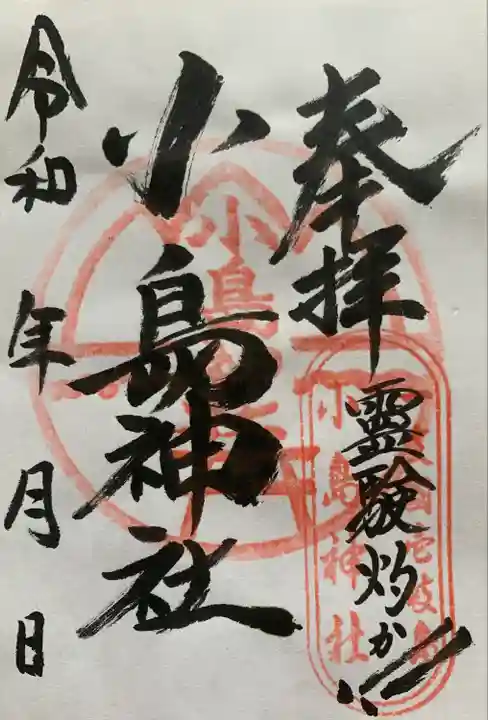 奉拝
霊験灼か!!
小島神社
令和 年 月 日
小島神社
壱岐島
小島神社